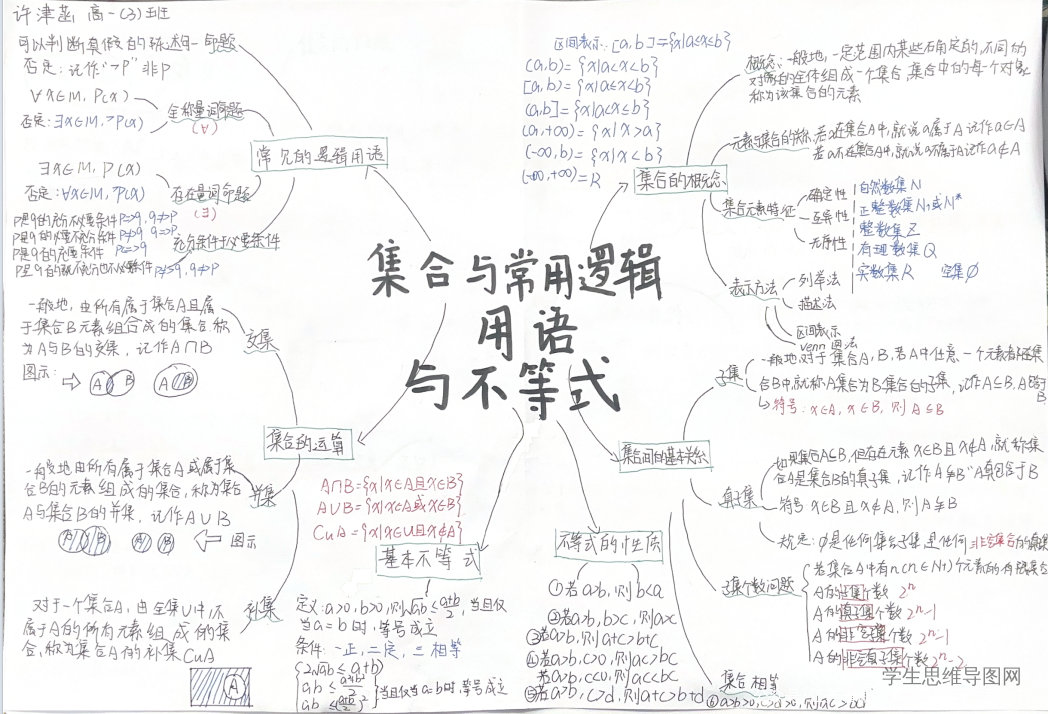 许津菡 高一(3)班
可以判断真假的陈述句—命题
否定：记作“¬P”非P
∀x∈M, P(x)
否定：∃x∈M, ¬P(x)
全称量词命题
(∀)
∃x∈M, P(x)
否定：∀x∈M, ¬P(x)
存在量词命题
(∃)
P是q的充分不必要条件 P⇒q, q⇏P
P是q的必要不充分条件 P⇏q, q⇒P
P是q的充要条件 P⇔q
P是q的既不充分也不必要条件 P⇏q, q⇏P
充分条件与必要条件
常见的逻辑用语
集合与常用逻辑
用语
与不等式
区间表示：[a,b]={x|a≤x≤b}
(a,b)={x|a<x<b}
[a,b)={x|a≤x<b}
(a,b]={x|a<x≤b}
(a,+∞)={x|x>a}
(-∞,b)={x|x<b}
(-∞,+∞)=R
集合的概念
概念：一般地，一定范围内某些确定的，不同的
对象的全体组成一个集合，集合中的每个对象
称为该集合的元素
元素与集合的关系 若a在集合A中，就说a属于A记作a∈A
若a不在集合A中，就说a不属于A记作a∉A
集合元素特征
确定性
互异性
无序性
自然数集N
正整数集N₊或N*
整数集Z
有理数集Q
实数集R 空集∅
表示方法
列举法
描述法
区间表示
venn图法
一般地，由所有属于集合A且属
于集合B元素组合成的集合，称
为A与B的交集，记作A∩B
图示：
A B A B
交集
集合的运算
一般地由所有属于集合A或属于集
合B的元素组成的集合，称为集合
A与集合B的并集，记作A∪B
A B A B 图示
并集
对于一个集合A，由全集U中不
属于A的所有元素组成的集
合，称为集合A的补集CuA
A
补集
A∩B={x|x∈A且x∈B}
A∪B={x|x∈A或x∈B}
CuA={x|x∈U且x∉A}
基本不等式
定义：a>0, b>0, 则√ab≤a+b/2，当且仅
当a=b时，等号成立
条件：一正，二定，三相等
2√ab≤a+b
ab≤a²+b²/2
ab≤(a+b/2)²
当且仅当a=b时，等号成立
不等式的性质
①若a>b, 则b<a
②若a>b, b>c, 则a>c
③若a>b, 则a+c>b+c
④若a>b, c>0, 则ac>bc
若a>b, c<0, 则ac<bc
⑤若a>b, c>d, 则a+c>b+d
⑥a>b>0, c>d>0, 则ac>bd
集合间的基本关系
子集
一般地，对于集合A,B，若A中任意一个元素都在集
合B中，就称A集合为B集合的子集，记作A⊆B,
符号：x∈A, x∈B, 则A⊆B
真子集
如果集合A⊆B，但存在元素x∈B且x∉A，就称集
合A是集合B的真子集，记作A⫋B“A真包含于B
符号 x∈B且x∉A, 则A⫋B
规定：∅是任何集合子集，是任何非空集合的真子集
子集个数问题
若集合A中有n(n∈N₊)个元素的有限集合
A的子集个数 2ⁿ
A的真子集个数 2ⁿ-1
A的非空子集个数 2ⁿ-1
A的非空真子集个数 2ⁿ-2
集合相等
学生思维导图网